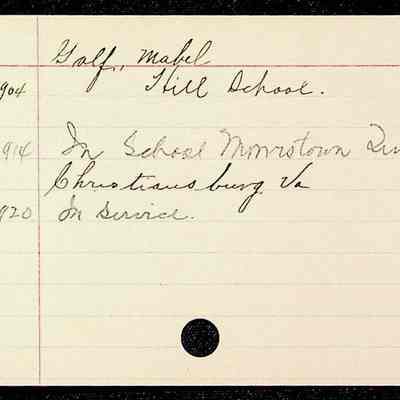 Golf, Mabel
904 Hill School.
914 In School Morristown
Christiansburg Va
920 In Service.